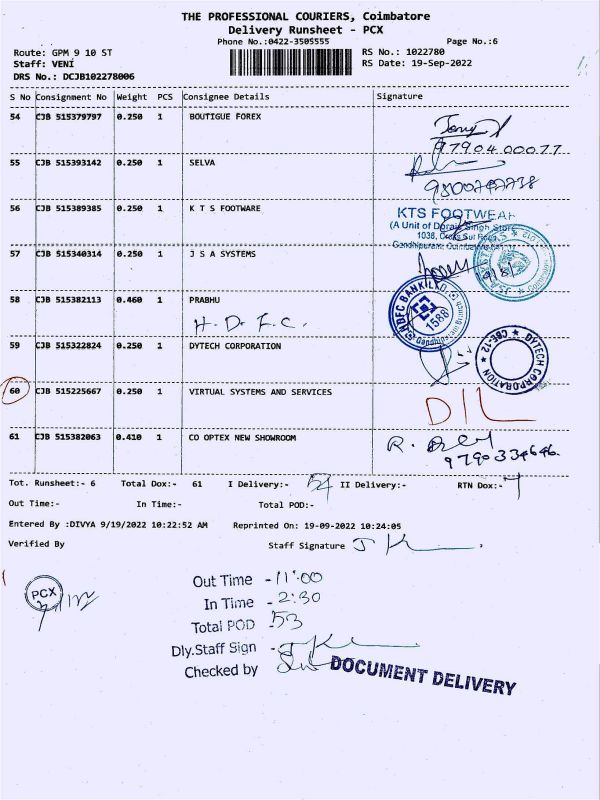 THE PROFESSIONAL COURIERS, Coimbatore
Delivery Runsheet - PCX
Phone No.:0422-3505555 Page No.:6
Route: GPM 9 10 ST RS No.: 1022780
Staff: VENI RS Date: 19-Sep-2022
DRS No.: DCJB102278006
S No Consignment No Weight PCS Consignee Details Signature
54 CJB 515379797 0.250 1 BOUTIGUE FOREX
97904 00077
55 CJB 515393142 0.250 1 SELVA
56 CJB 515389385 0.250 1 K T S FOOTWARE
KTS FOOTWEAR
(A Unit of Dorai Singh Store
57 CJB 515340314 0.250 1 J S A SYSTEMS
58 CJB 515382113 0.460 1 PRABHU
H.D.F.C.
HDFC BANK LTD
1588
59 CJB 515322824 0.250 1 DYTECH CORPORATION
DYTECH CORPORATION
CBE-12
60 CJB 515225667 0.250 1 VIRTUAL SYSTEMS AND SERVICES
DIL
61 CJB 515382063 0.410 1 CO OPTEX NEW SHOWROOM
R.
9790334646.
Tot. Runsheet:- 6 Total Dox:- 61 I Delivery:- 54 II Delivery:- RTN Dox:- 7
Out Time:- In Time:- Total POD:-
Entered By :DIVYA 9/19/2022 10:22:52 AM Reprinted On: 19-09-2022 10:24:05
Verified By Staff Signature
PCX
Out Time - 11:00
In Time - 2:30
Total POD - 53
Dly.Staff Sign -
Checked by
DOCUMENT DELIVERY